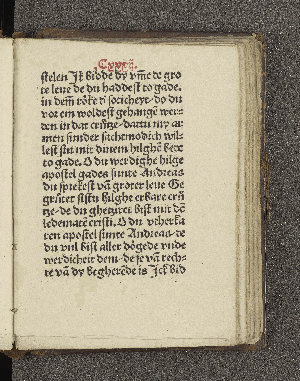 Cxxxii.
stelen Jk bidde dy vm̄e de gro
te leue de du haddest to gade.
in dem do
vor em woldest gehangē wer
den in dat crūtze dattu my ar
men sunder sachtmodich wil
lest sin mit dinem hilghē bere
to gade. O du werdighe hilge
apostel gades sunte Andreas
du sprekest vā groter leue Ge
grötet sistu hilghe erbare crū
tze de du gheziret bist mit dē
ledematē cristi. O du vtherka
ren apostel sunte Andreas de
du vul bist aller dögede vnde
werdicheit dem de se vā rech
te vā dy begherēde is Jck bid